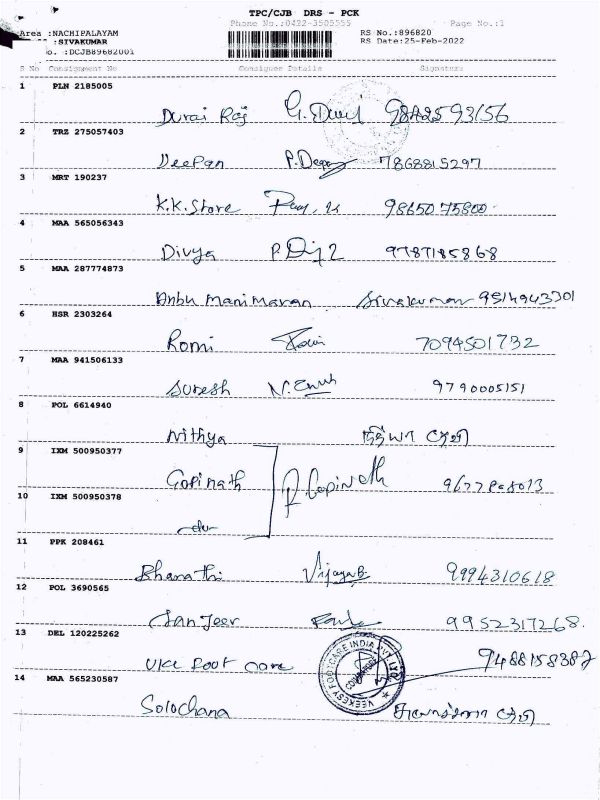 TPC/CJB DRS - PCK
Phone No.:0422-3505555 Page No.:1
Area :NACHIPALAYAM RS No.:896820
:SIVAKUMAR RS Date:25-Feb-2022
o. :DCJB89682001
S No Consignment No Consignee Details Signature
1 PLN 2185005
Durai Raj 9842593156
2 TRZ 275057403
Deepan 7868815297
3 MRT 190237
K.K. Store 9865075800
4 MAA 565056343
Divya 9787185868
5 MAA 287774873
Anbu Manimaran Sivakumar 9514943301
6 HSR 2303264
Romi 7094501732
7 MAA 941506133
Suresh 9790005151
8 POL 6614940
Nithya நித்யா
9 IXM 500950377
Gopinath P. Gopinath
10 IXM 500950378
11 PPK 208461
Bharathi Vijaya B. 9994310618
12 POL 3690565
Sanjeev 9952317268.
13 DEL 120225262
VKC Foot Care VEEKESY FOOTCARE INDIA PVT LTD COIMBATORE 9488158382
14 MAA 565230587
Solochana